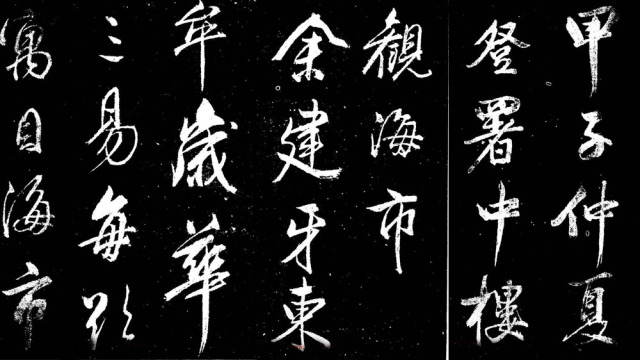 甲子仲夏
登署中樓
觀海市
余建牙東
牟歲華
三易每欲
寓目海市